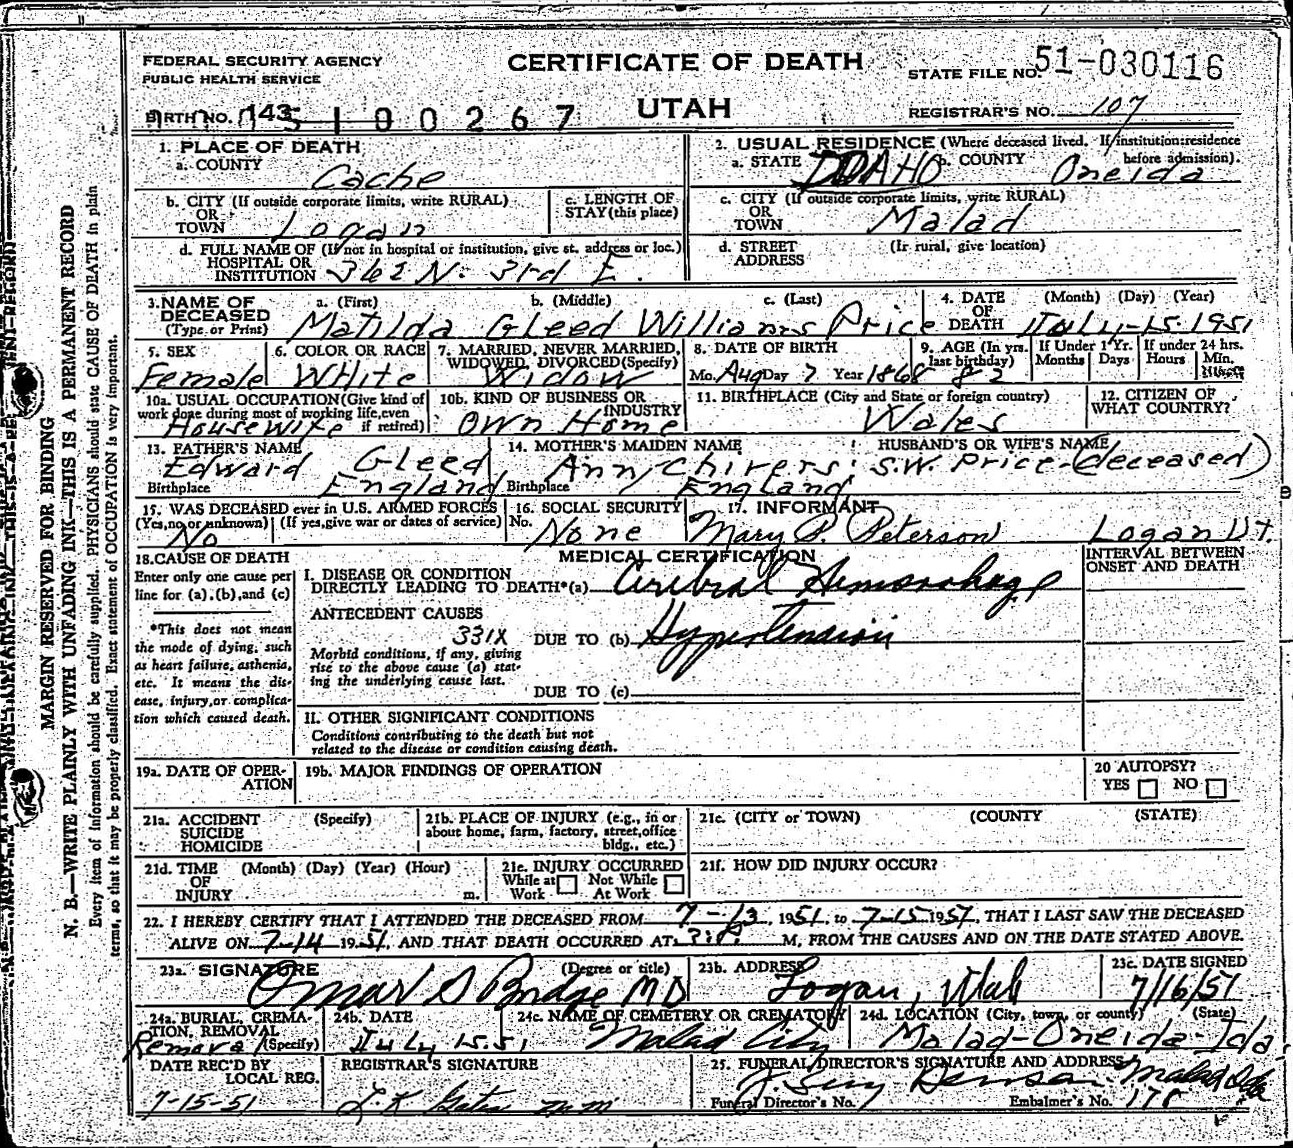 FEDERAL SECURITY AGENCY
PUBLIC HEALTH SERVICE
CERTIFICATE OF DEATH
UTAH
STATE FILE NO. 51-030116
REGISTRAR'S NO. 107
BIRTH NO. 143 5100267
1. PLACE OF DEATH
a. COUNTY Cache
b. CITY (If outside corporate limits, write RURAL) OR TOWN Logan
c. LENGTH OF STAY (this place)
d. FULL NAME OF (If not in hospital or institution, give st. address or loc.) HOSPITAL OR INSTITUTION 362 N. 3rd E.
2. USUAL RESIDENCE (Where deceased lived. If institution: residence before admission).
a. STATE IDAHO b. COUNTY Oneida
c. CITY (If outside corporate limits, write RURAL) OR TOWN Malad
d. STREET ADDRESS (Ir rural, give location)
3. NAME OF DECEASED (Type or Print) a. (First) b. (Middle) c. (Last)
Matilda Gleed Williams Price
4. DATE OF DEATH (Month) (Day) (Year) July-15-1951
5. SEX Female
6. COLOR OR RACE White
7. MARRIED, NEVER MARRIED, WIDOWED, DIVORCED (Specify) Widow
8. DATE OF BIRTH Mo. Aug Day 7 Year 1868
9. AGE (In yrs. last birthday) 82
If Under 1 Yr. Months Days
If under 24 hrs. Hours Min.
10a. USUAL OCCUPATION (Give kind of work done during most of working life, even if retired) Housewife
10b. KIND OF BUSINESS OR INDUSTRY Own Home
11. BIRTHPLACE (City and State or foreign country) Wales
12. CITIZEN OF WHAT COUNTRY?
13. FATHER'S NAME Edward Gleed
Birthplace England
14. MOTHER'S MAIDEN NAME Ann Chivers
Birthplace England
HUSBAND'S OR WIFE'S NAME S.W. Price-(deceased)
15. WAS DECEASED ever in U.S. ARMED FORCES (Yes, no or unknown) (If yes, give war or dates of service) No
16. SOCIAL SECURITY No. None
17. INFORMANT Mary P. Peterson Logan Ut.
18. CAUSE OF DEATH
Enter only one cause per line for (a), (b), and (c)
*This does not mean the mode of dying, such as heart failure, asthenia, etc. It means the disease, injury, or complication which caused death.
MEDICAL CERTIFICATION
INTERVAL BETWEEN ONSET AND DEATH
I. DISEASE OR CONDITION DIRECTLY LEADING TO DEATH* (a) Cerebral Hemorrhage
ANTECEDENT CAUSES
331X DUE TO (b) Hypertension
Morbid conditions, if any, giving rise to the above cause (a) stating the underlying cause last.
DUE TO (c)
II. OTHER SIGNIFICANT CONDITIONS
Conditions contributing to the death but not related to the disease or condition causing death.
19a. DATE OF OPERATION
19b. MAJOR FINDINGS OF OPERATION
20 AUTOPSY? YES NO
21a. ACCIDENT SUICIDE HOMICIDE (Specify)
21b. PLACE OF INJURY (e.g., in or about home, farm, factory, street, office bldg., etc.)
21c. (CITY or TOWN) (COUNTY) (STATE)
21d. TIME OF INJURY (Month) (Day) (Year) (Hour) m.
21e. INJURY OCCURRED While at Work Not While At Work
21f. HOW DID INJURY OCCUR?
22. I HEREBY CERTIFY THAT I ATTENDED THE DECEASED FROM 7-13 1951, to 7-15 1951, THAT I LAST SAW THE DECEASED
ALIVE ON 7-14 1951, AND THAT DEATH OCCURRED AT M, FROM THE CAUSES AND ON THE DATE STATED ABOVE.
23a. SIGNATURE (Degree or title) Omar S Budge MD
23b. ADDRESS Logan, Utah
23c. DATE SIGNED 7/16/51
24a. BURIAL, CREMATION, REMOVAL (Specify) Removal
24b. DATE July 15 51
24c. NAME OF CEMETERY OR CREMATORY Malad City
24d. LOCATION (City, town, or county) (State) Malad-Oneida-Ida
DATE REC'D BY LOCAL REG. 7-15-51
REGISTRAR'S SIGNATURE
25. FUNERAL DIRECTOR'S SIGNATURE AND ADDRESS Malad Ida
Funeral Director's No. Embalmer's No. 178
MARGIN RESERVED FOR BINDING
N. B.—WRITE PLAINLY WITH UNFADING INK—THIS IS A PERMANENT RECORD
Every item of information should be carefully supplied. PHYSICIANS should state CAUSE OF DEATH in plain
terms, so that it may be properly classified. Exact statement of OCCUPATION is very important.